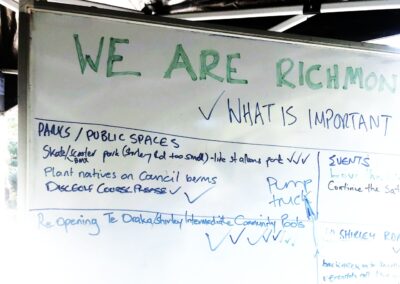 WE ARE RICHMON
✓ WHAT IS IMPORTANT
PARKS / PUBLIC SPACES
Skate/scooter park (Shirley Rd too small) - like St albans park ✓✓✓
BMX
Plant natives on Council berms
DISC GOLF COURSE PLEASE ✓ ✓
Pump
track
Re Opening Te Oraka/Shirley Intermediate Community Pools
✓✓ ✓✓
EVENTS
Continue the Sat
SHIRLEY RO